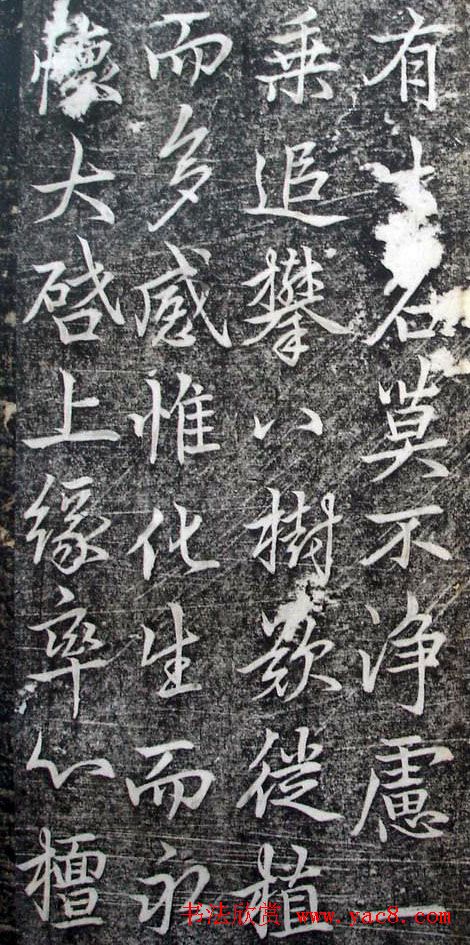 有石莫不浄慮一
乘追攀八樹歎徙植
而多感惟化生而永
懷大啓上緣率心檀
书法欣赏 www.yac8.com